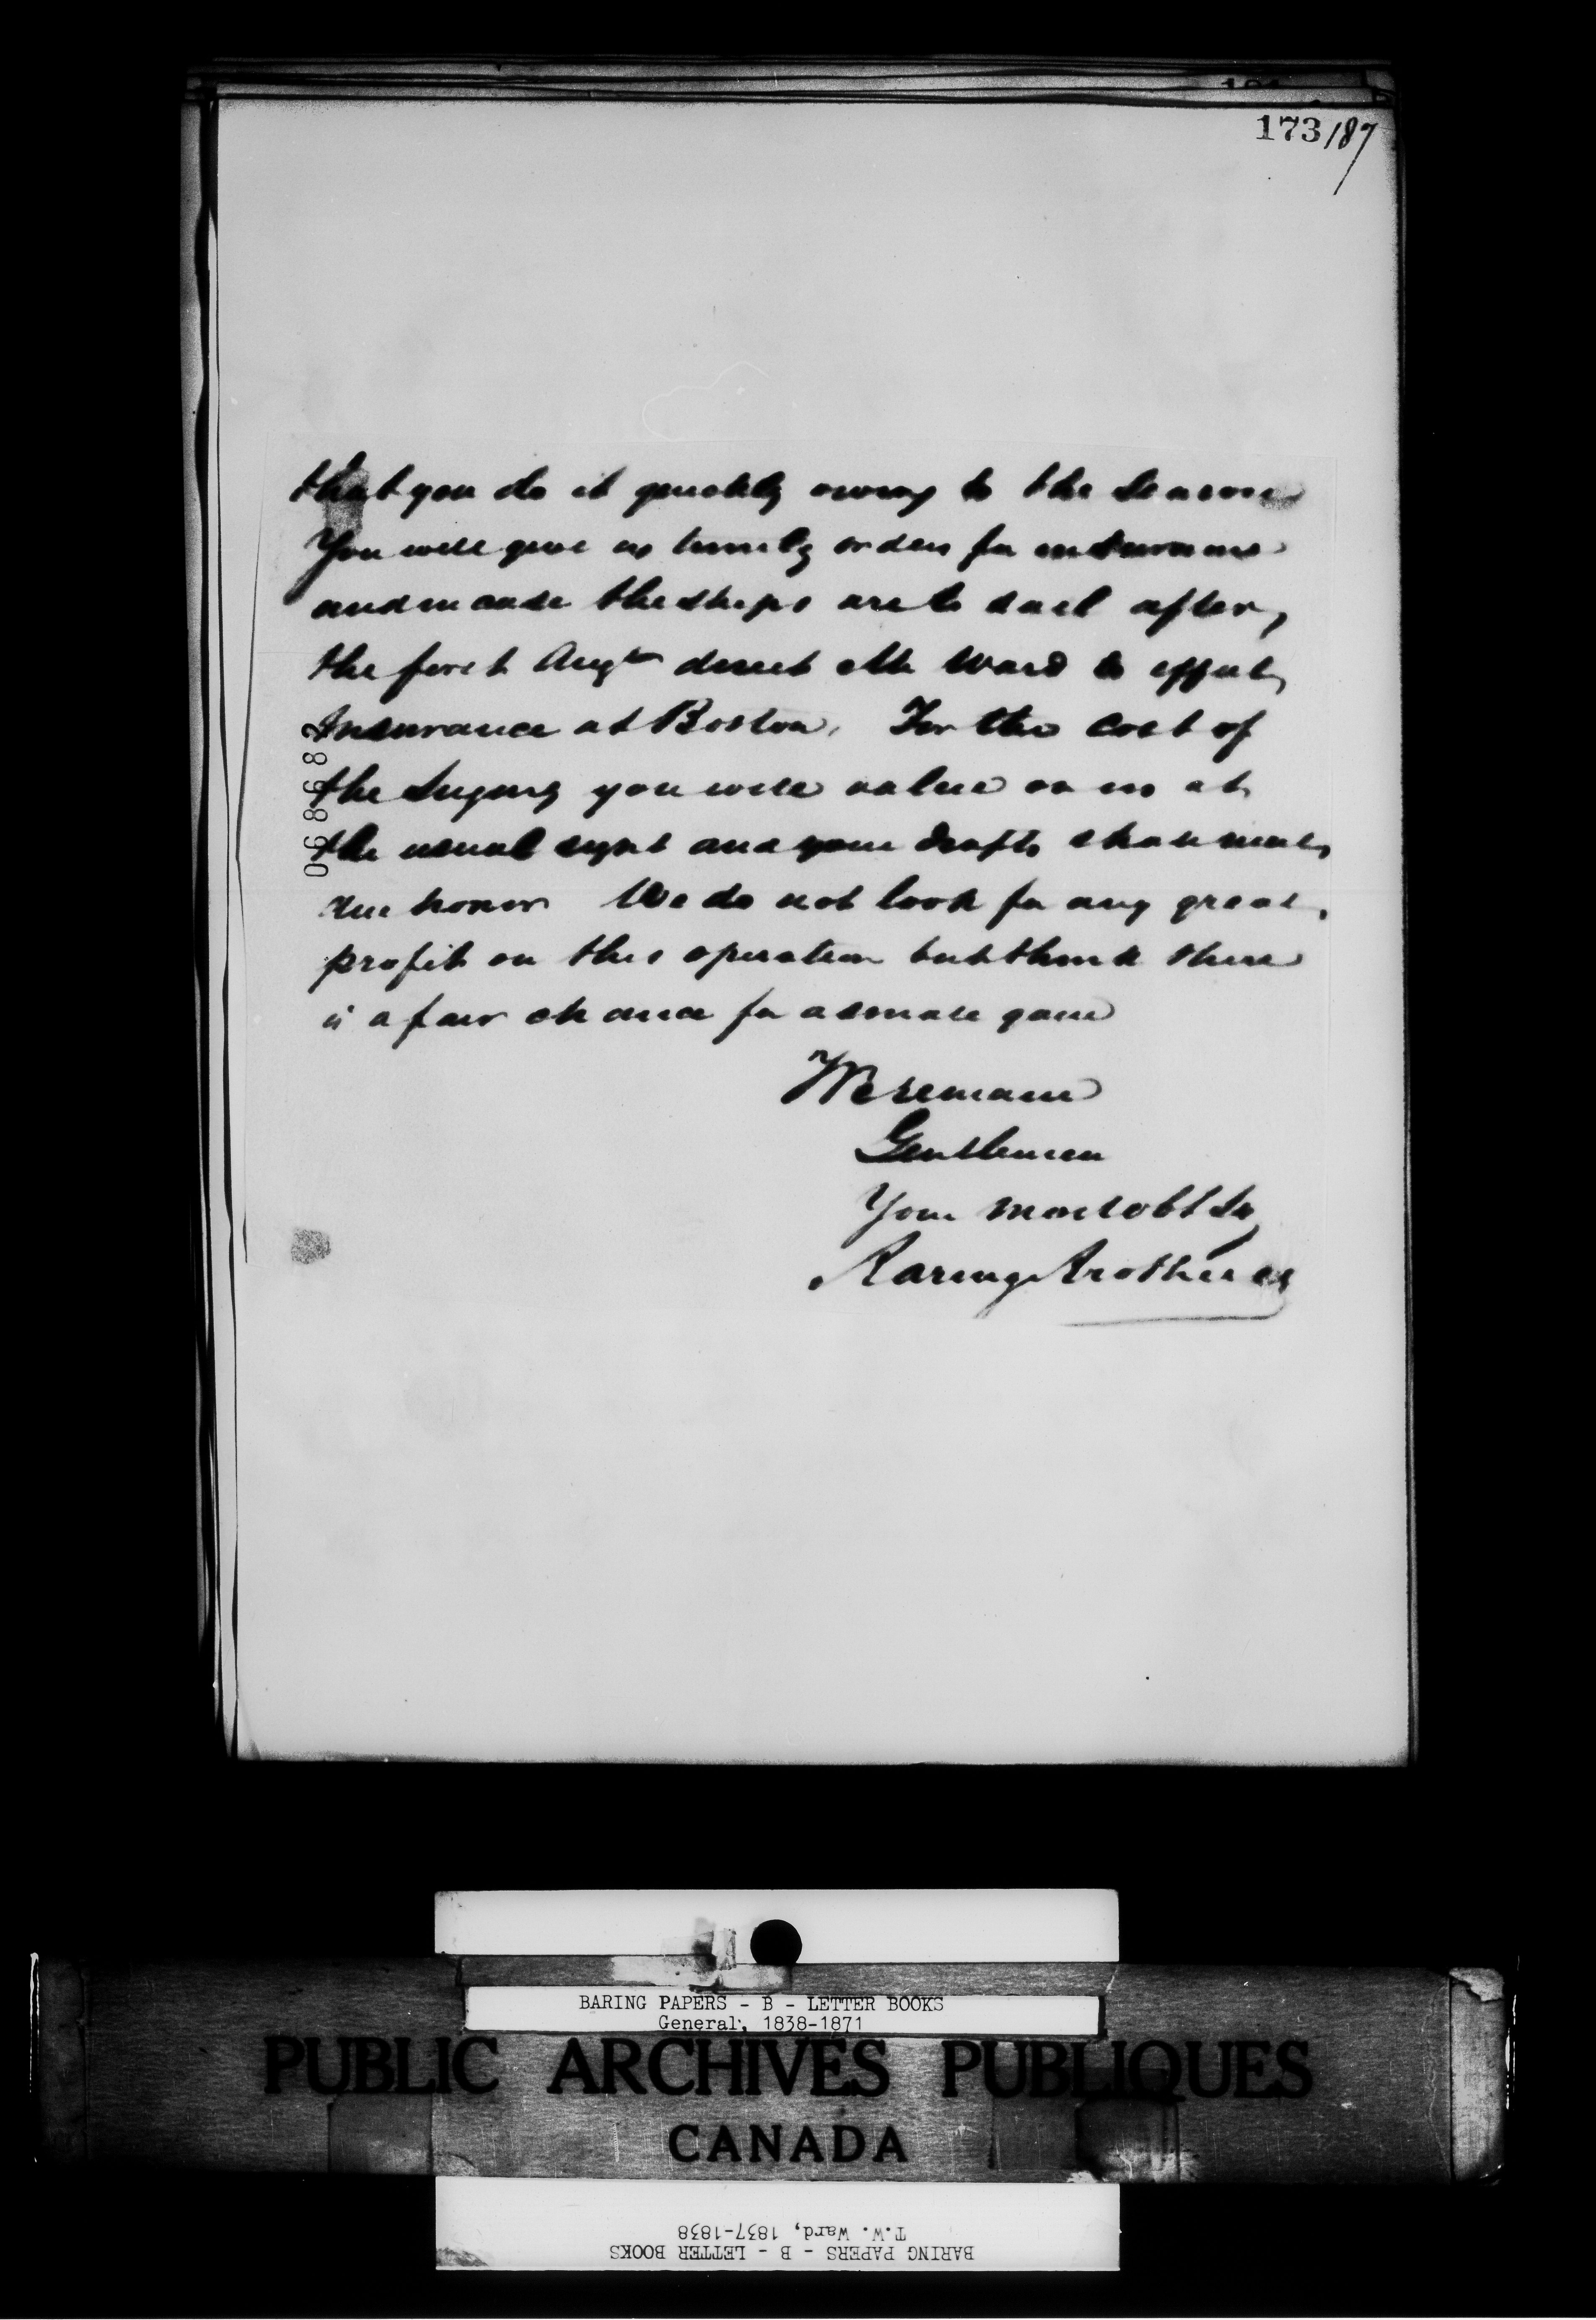 173/87
that you do it quickly owing to the Season
You will give us timely orders for insurance
and in case the ships are to sail after
the first Augt direct Mr Ward to effect
Insurance at Boston. For the cost of
the Sugars you will value on us at
the usual sight and your drafts shall meet
due honor We do not look for any great
profit on this operation but think there
is a fair chance for a small gain
We remain
Gentlemen
Your most obt Ss
Baring Brothers Co
068682
BARING PAPERS - B - LETTER BOOKS
General, 1838-1871
PUBLIC ARCHIVES PUBLIQUES
CANADA
BARING PAPERS - B - LETTER BOOKS
T.W. Ward, 1837-1838